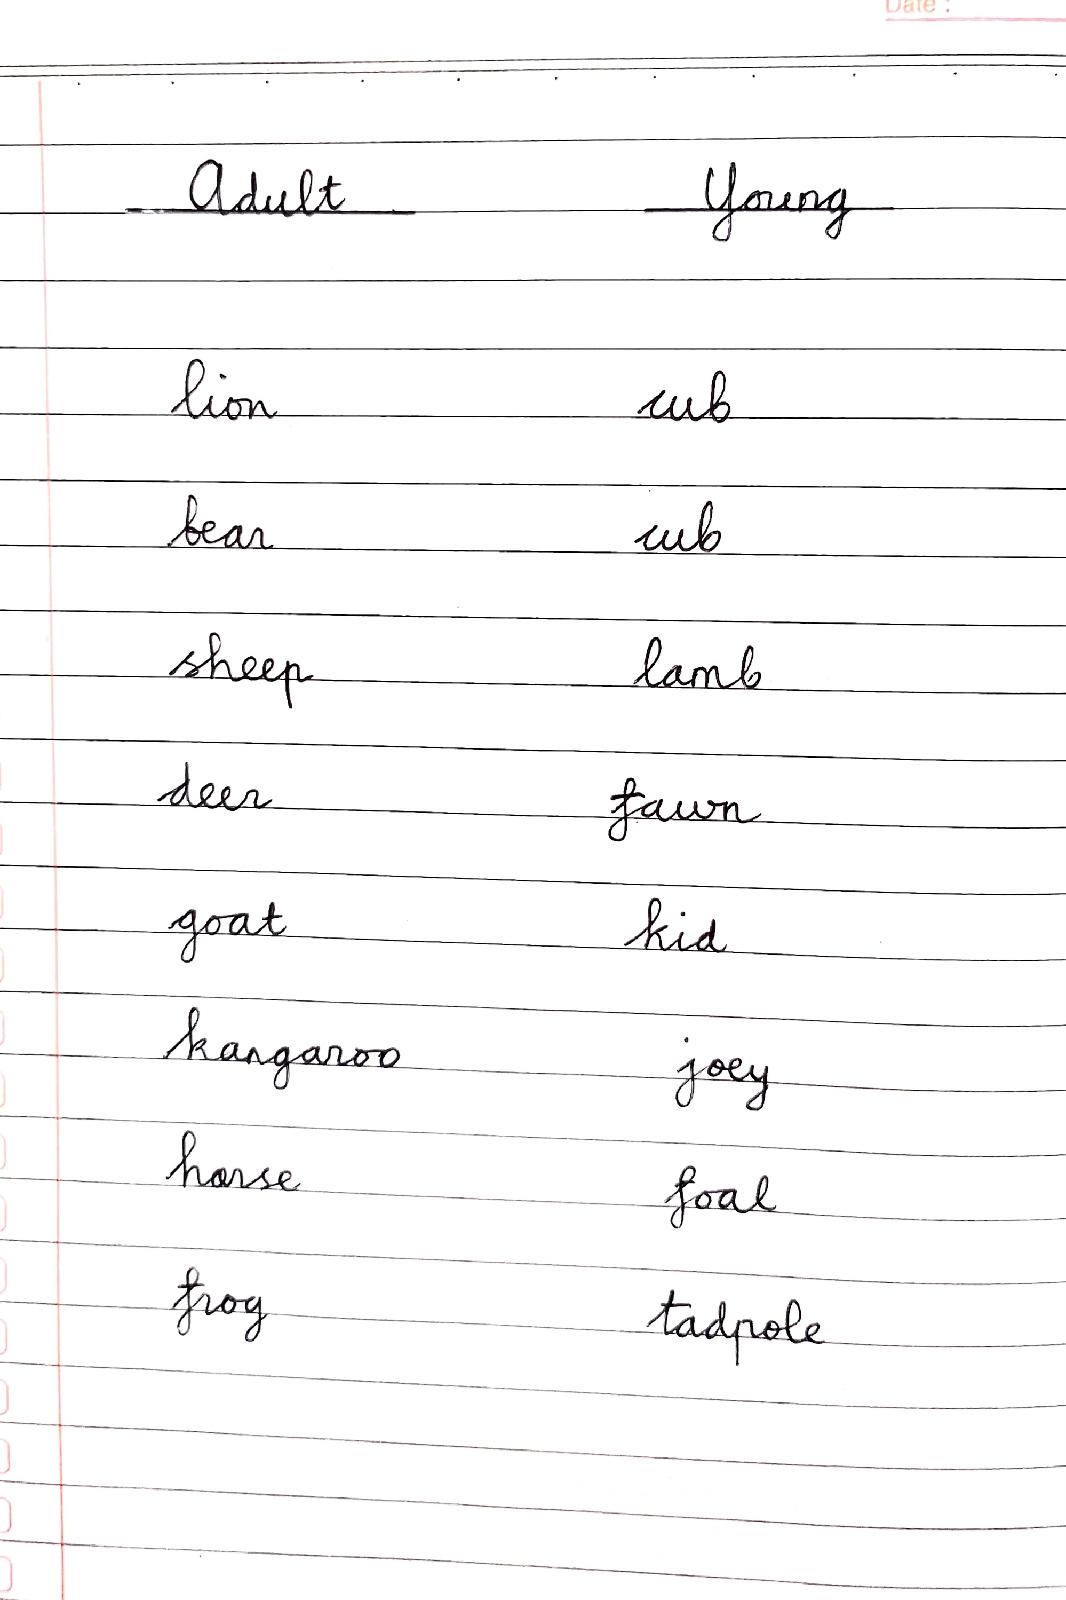 Date :
Adult Young
lion cub
bear cub
sheep lamb
deer fawn
goat kid
kangaroo joey
horse foal
frog tadpole